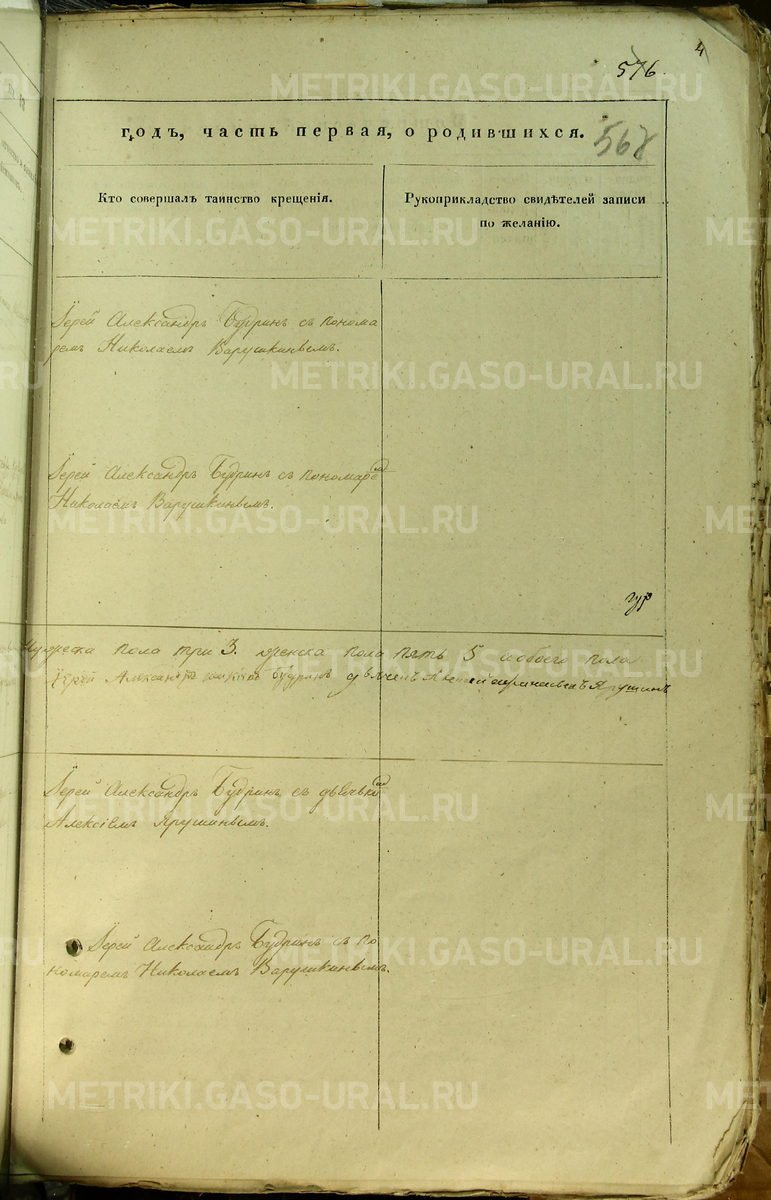 4
576
годъ, часть первая, о родившихся.
568
Кто совершалъ таинство крещенія.
Рукоприкладство свидѣтелей записи
по желанію.
Іерей Александръ Будринъ съ понома
ремъ Николаемъ Варушкинымъ.
Іерей Александръ Будринъ съ пономаремъ
Николаемъ Варушкинымъ.
Мужеска пола три 3. женска пола пять 5 обоего пола
Іерей Александръ Будринъ Ярушинъ
Іерей Александръ Будринъ съ дьячкомъ
Алексіемъ Ярушинымъ.
Іерей Александръ Будринъ съ по
номаремъ Николаемъ Варушкинымъ.
METRIKI.GASO-URAL.RU